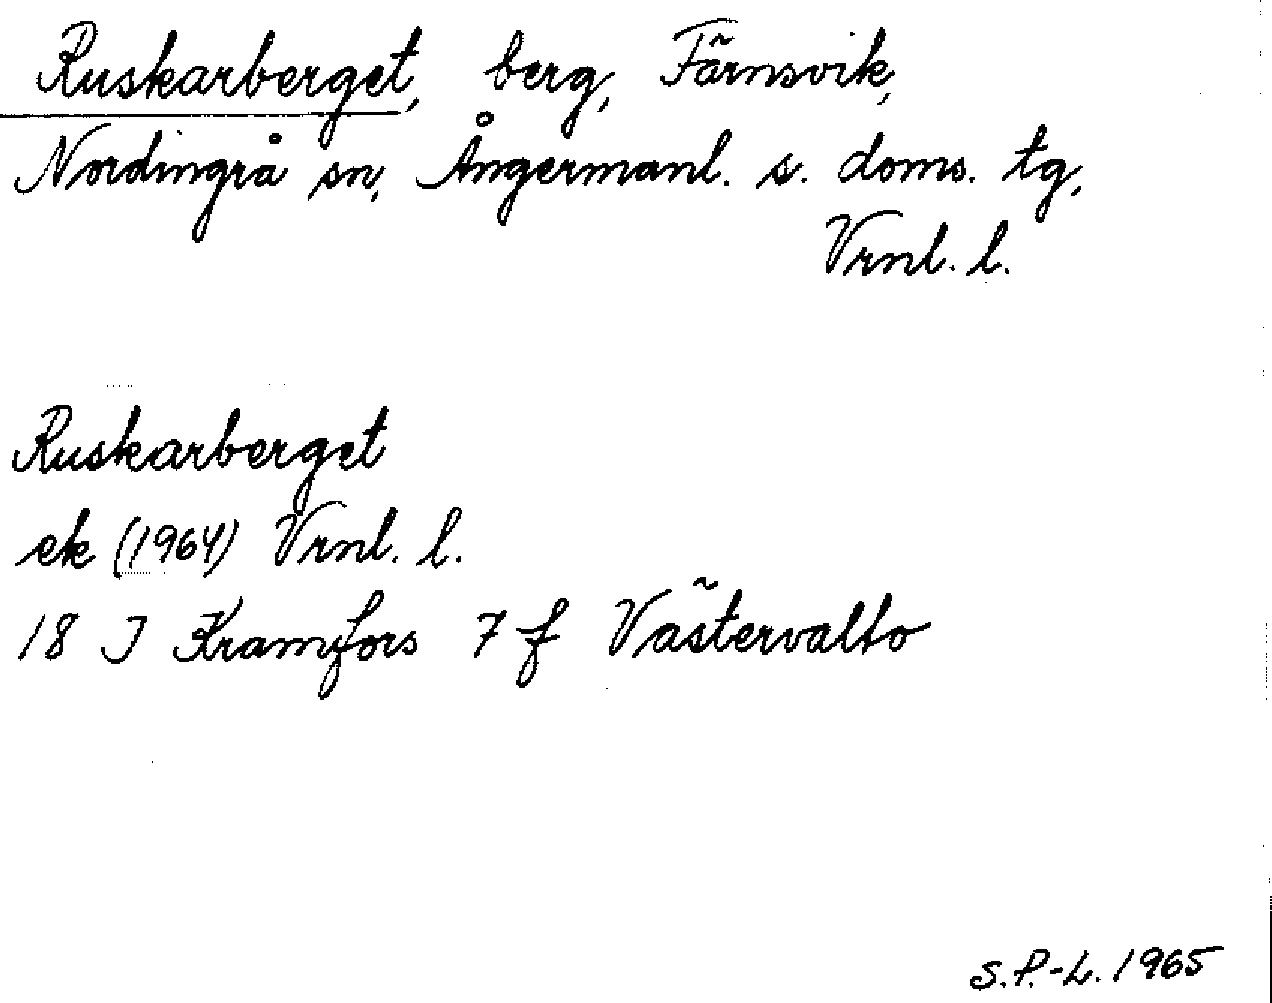 Ruskarberget, berg, Färnsvik,
Nordingrå sn, Ångermanl. s. doms. tg,
Vrnl. l.
Ruskarberget
ek (1964) Vrnl. l.
18 J Kramfors 7 f Västervalto
S.P.-L. 1965